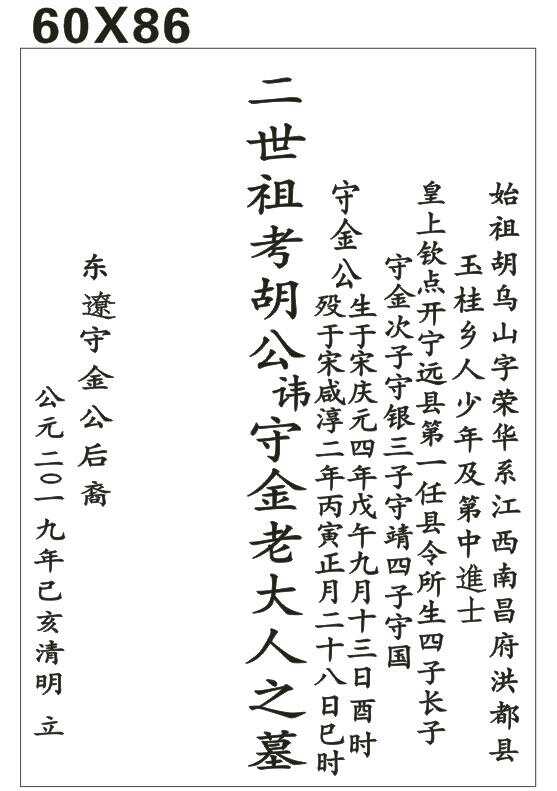 60X86
始祖胡鸟山字荣华系江西南昌府洪都县
玉桂乡人少年及第中進士
皇上钦点开宁远县第一任县令所生四子长子
守金次子守银三子守靖四子守国
守金公
生于宋庆元四年戊午九月十三日酉时
殁于宋咸淳二年丙寅正月二十八日巳时
二世祖考胡公讳守金老大人之墓
东遼守金公后裔
公元二〇一九年己亥清明 立